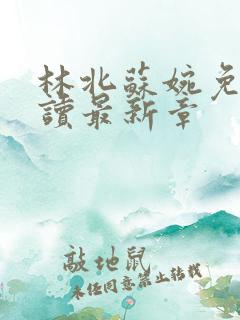 林北蘇婉免
讀最新章
敲地鼠
未经同意禁止转载